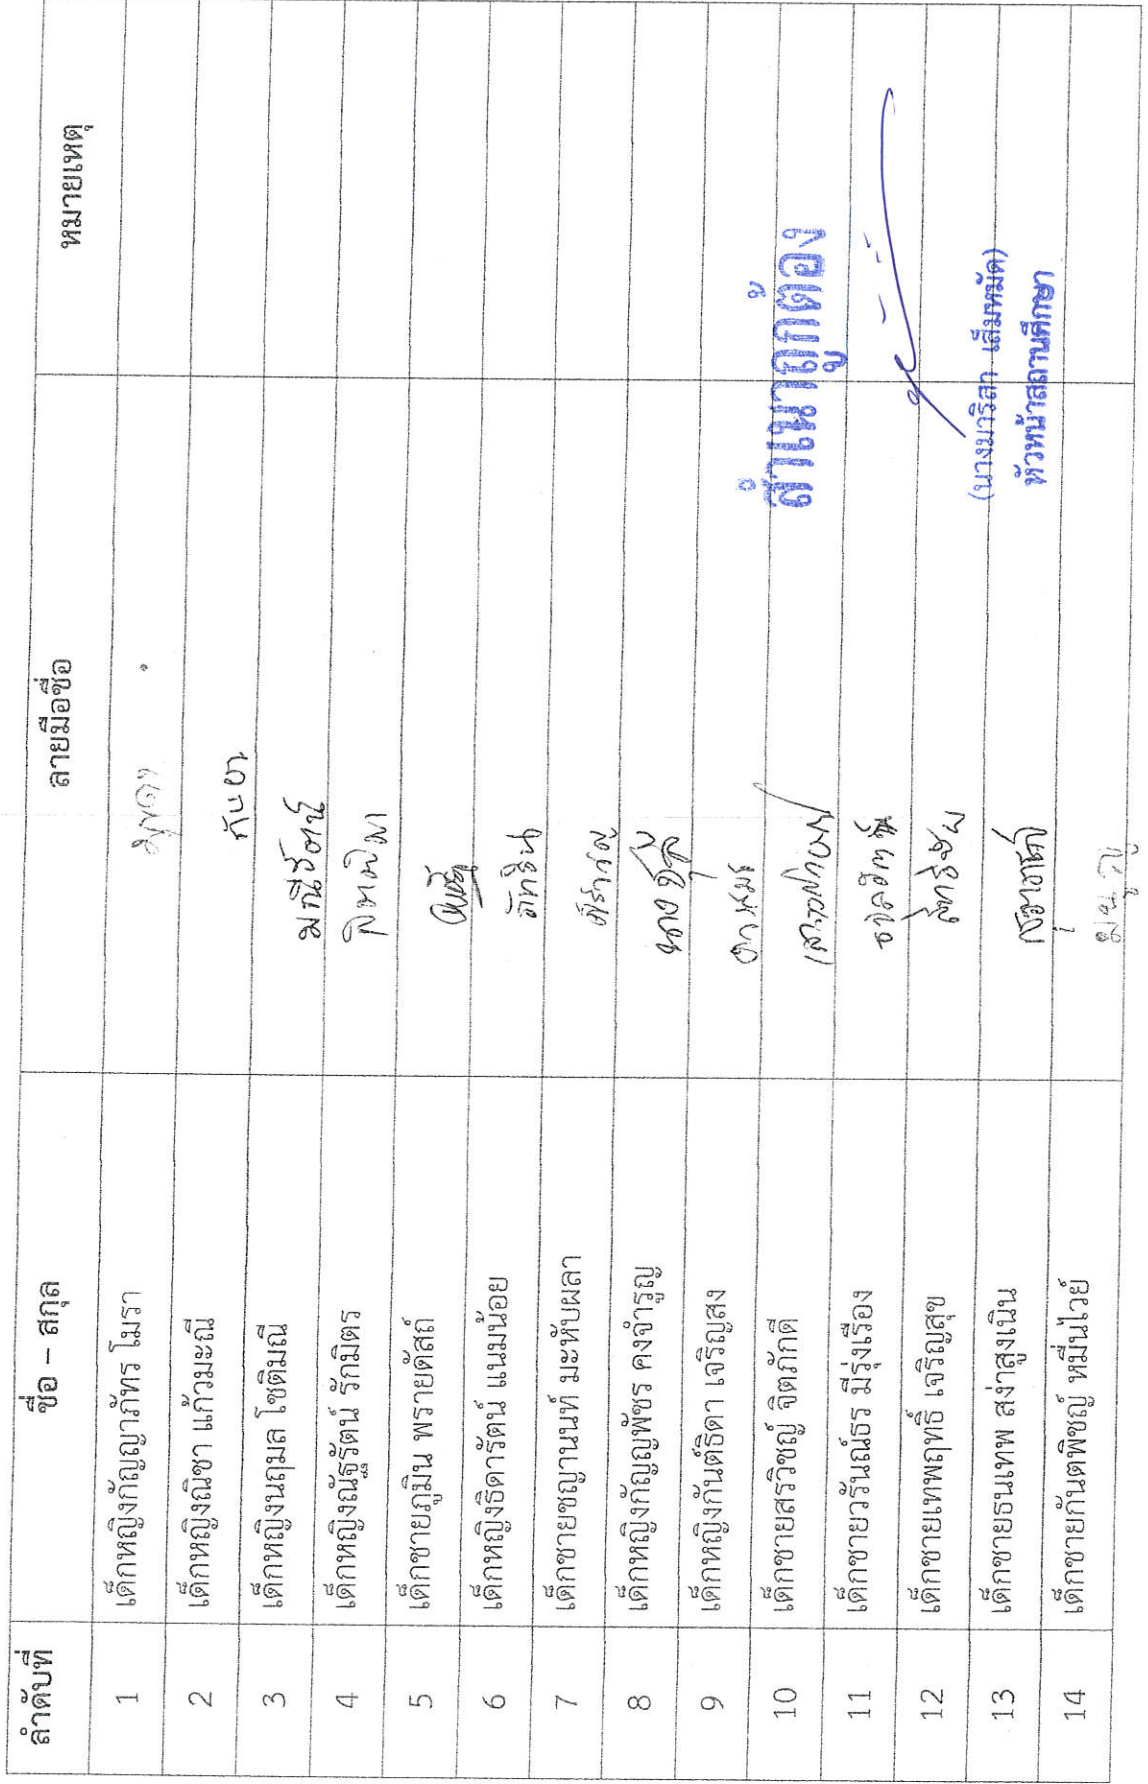 ลำดับที่ ชื่อ – สกุล ลายมือชื่อ หมายเหตุ
1 เด็กหญิงกัญญาภัทร โมรา
2 เด็กหญิงณิชา แก้วมะณี กันยา
3 เด็กหญิงนฤมล โชติมณี มณีรัตน์
4 เด็กหญิงณัฐรัตน์ รักมิตร
5 เด็กชายภูมิน พรายดัสถ์
6 เด็กหญิงธิดารัตน์ แนมน้อย
7 เด็กชายชญานนท์ มะหับผลา
8 เด็กหญิงกัญญพัชร คงจำรูญ
9 เด็กหญิงกันต์ธิดา เจริญสง
10 เด็กชายสรวิชญ์ จิตภักดี
11 เด็กชายวรันณ์ธร มีรุ่งเรือง
12 เด็กชายเทพฤทธิ์ เจริญสุข
13 เด็กชายธนเทพ สง่าสูงเนิน
14 เด็กชายกันตพิชญ์ หมื่นไวย์
สำเนาถูกต้อง
(นางมาริสา เส็มหมัด)
หัวหน้าสถานศึกษา